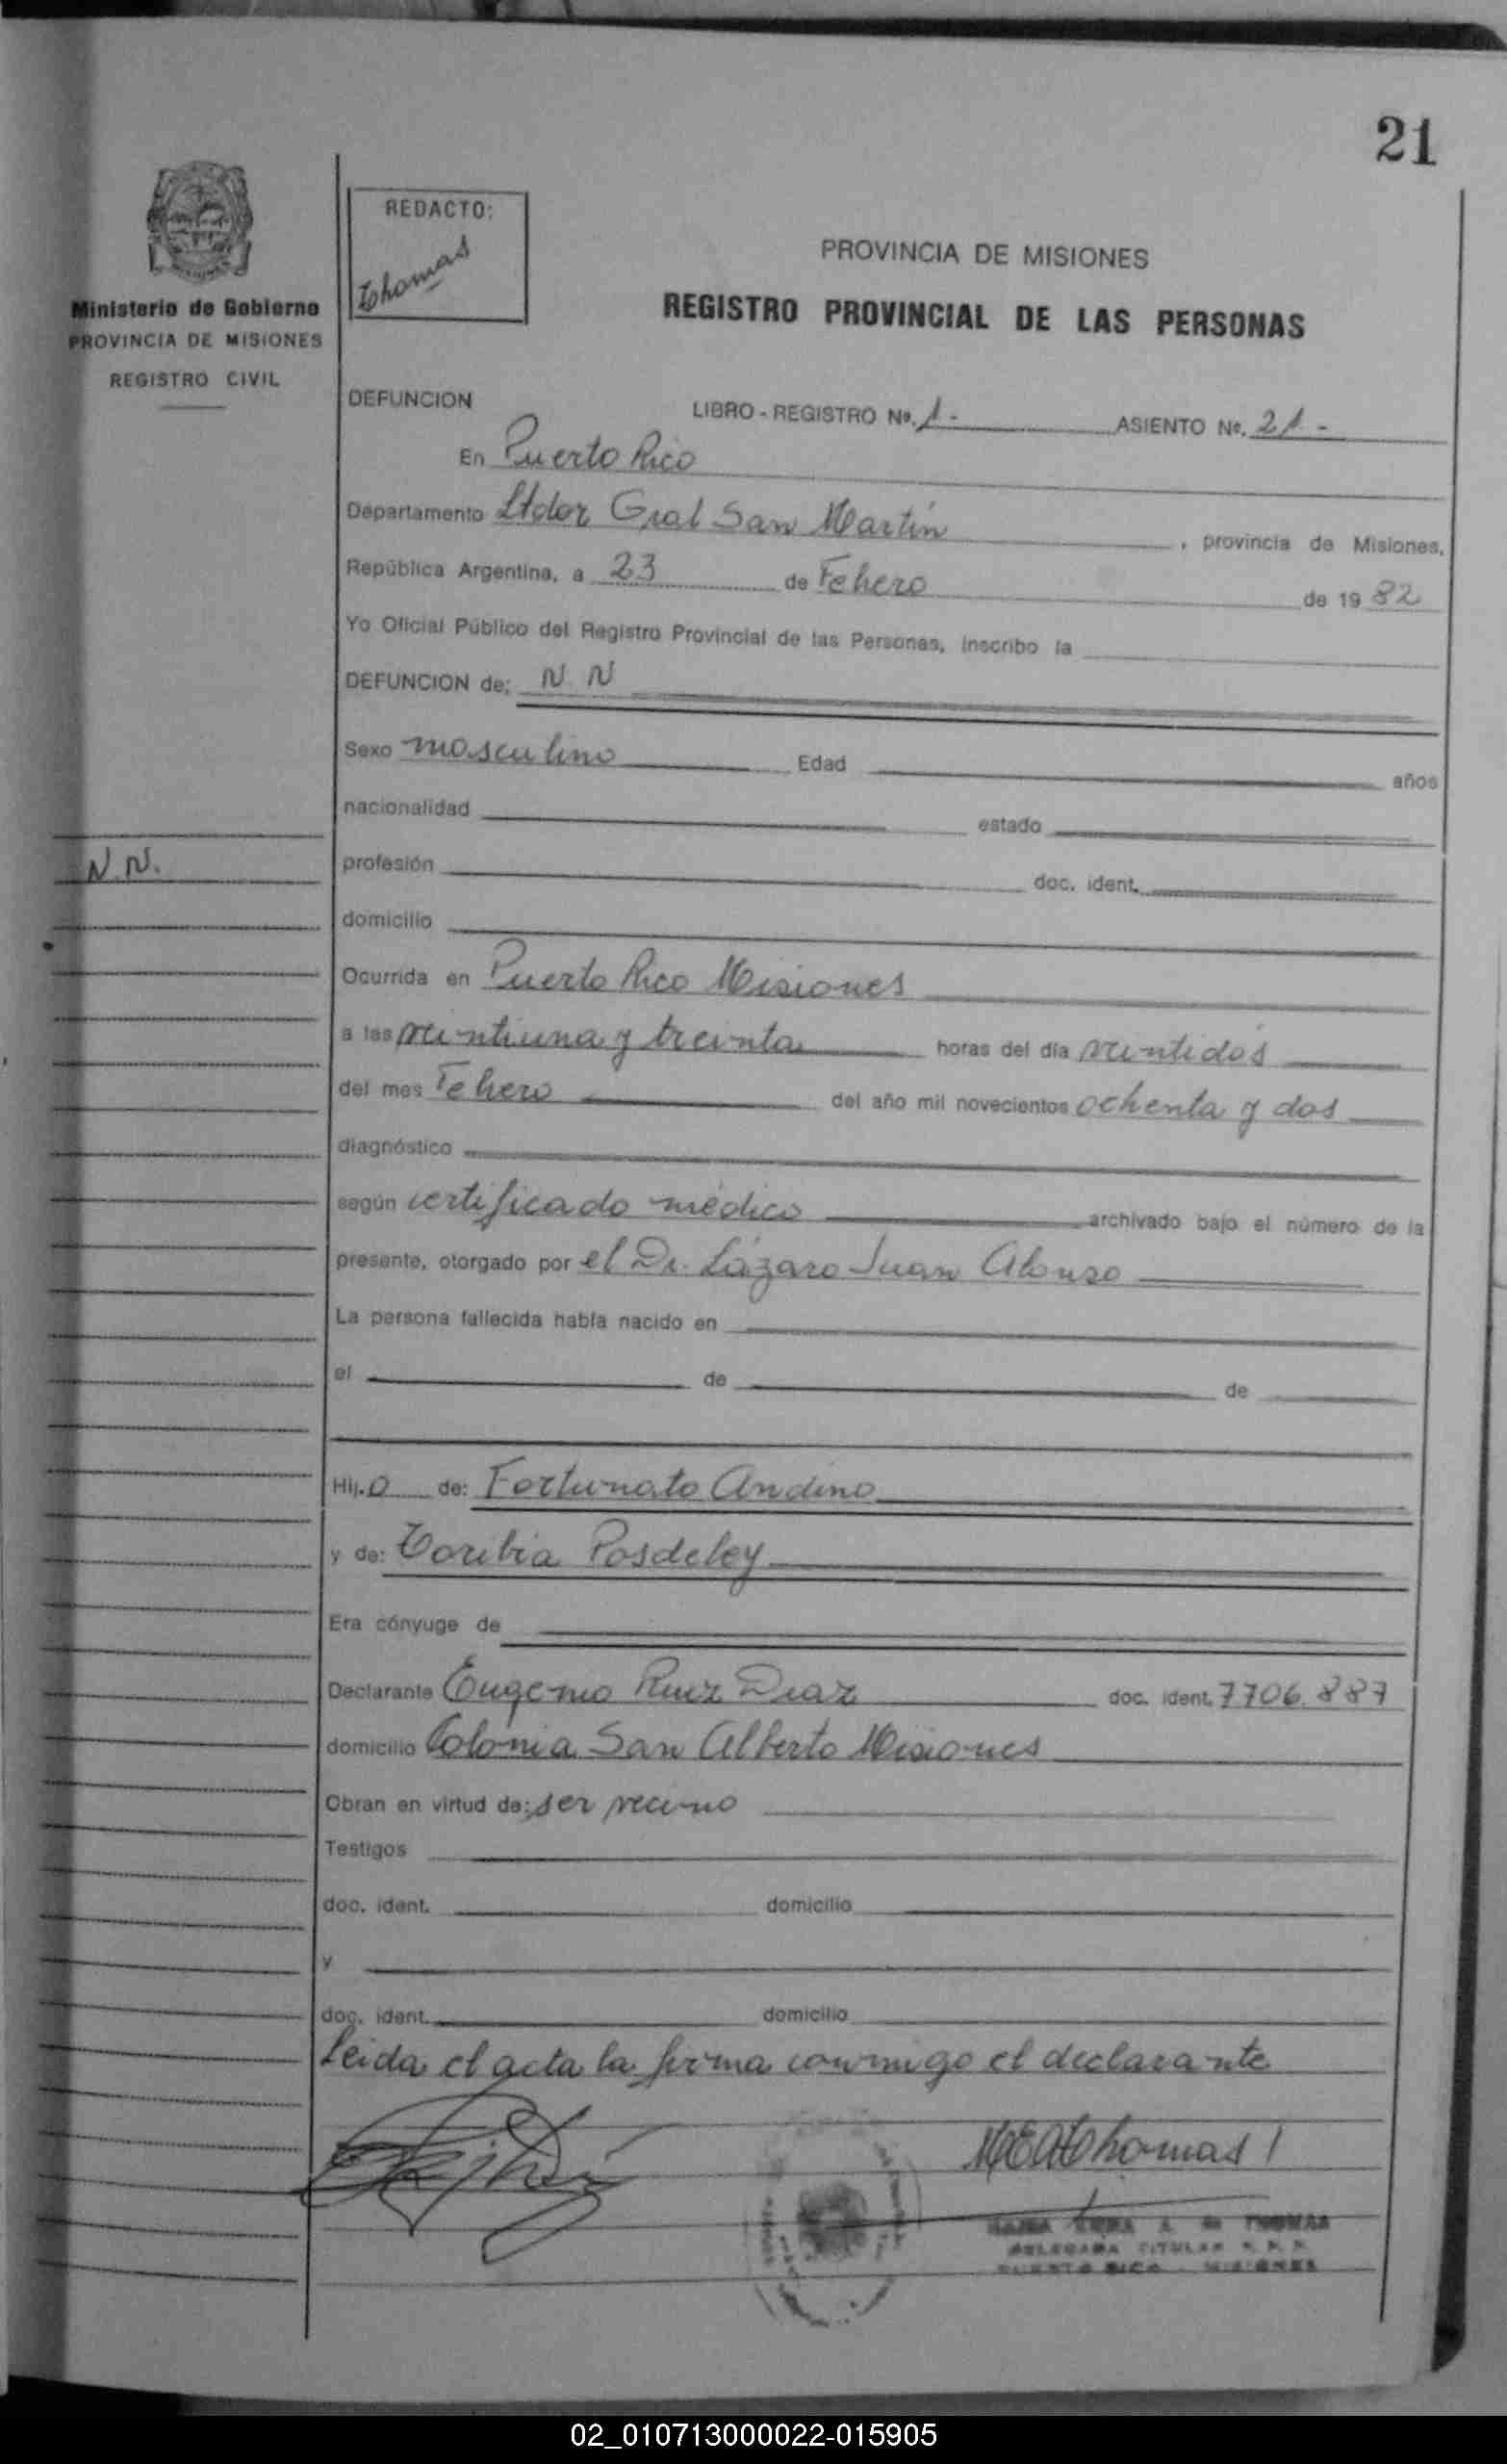 21
Ministerio de Gobierno
PROVINCIA DE MISIONES
REGISTRO CIVIL
REDACTO:
Thomas
PROVINCIA DE MISIONES
REGISTRO PROVINCIAL DE LAS PERSONAS
DEFUNCION LIBRO - REGISTRO Nº. 1.- ASIENTO Nº. 21 -
En Puerto Rico
Departamento Ltdor Gral San Martín , provincia de Misiones,
República Argentina, a 23 de Febrero de 19 82
Yo Oficial Público del Registro Provincial de las Personas, inscribo la
DEFUNCION de: N N
Sexo masculino Edad años
nacionalidad estado
N.N.
profesión doc. ident.
domicilio
Ocurrida en Puerto Rico Misiones
a las veintiuna y treinta horas del día veintidos
del mes Febrero del año mil novecientos ochenta y dos
diagnóstico
según certificado médico archivado bajo el número de la
presente, otorgado por el Dr. Lázaro Juan Alonso
La persona fallecida había nacido en
el de de
Hij.o de: Fortunato Andino
y de: Toribia Posdeley
Era cónyuge de
Declarante Eugenio Ruiz Diaz doc. ident. 7706.887
domicilio Colonia San Alberto Misiones
Obran en virtud de: ser vecino
Testigos
doc. ident. domicilio
y
doc. ident. domicilio
Leida el acta la firma conmigo el declarante
Thomas
THOMAS
DELEGADA TITULAR R. P. P.
PUERTO RICO - MISIONES
02_010713000022-015905